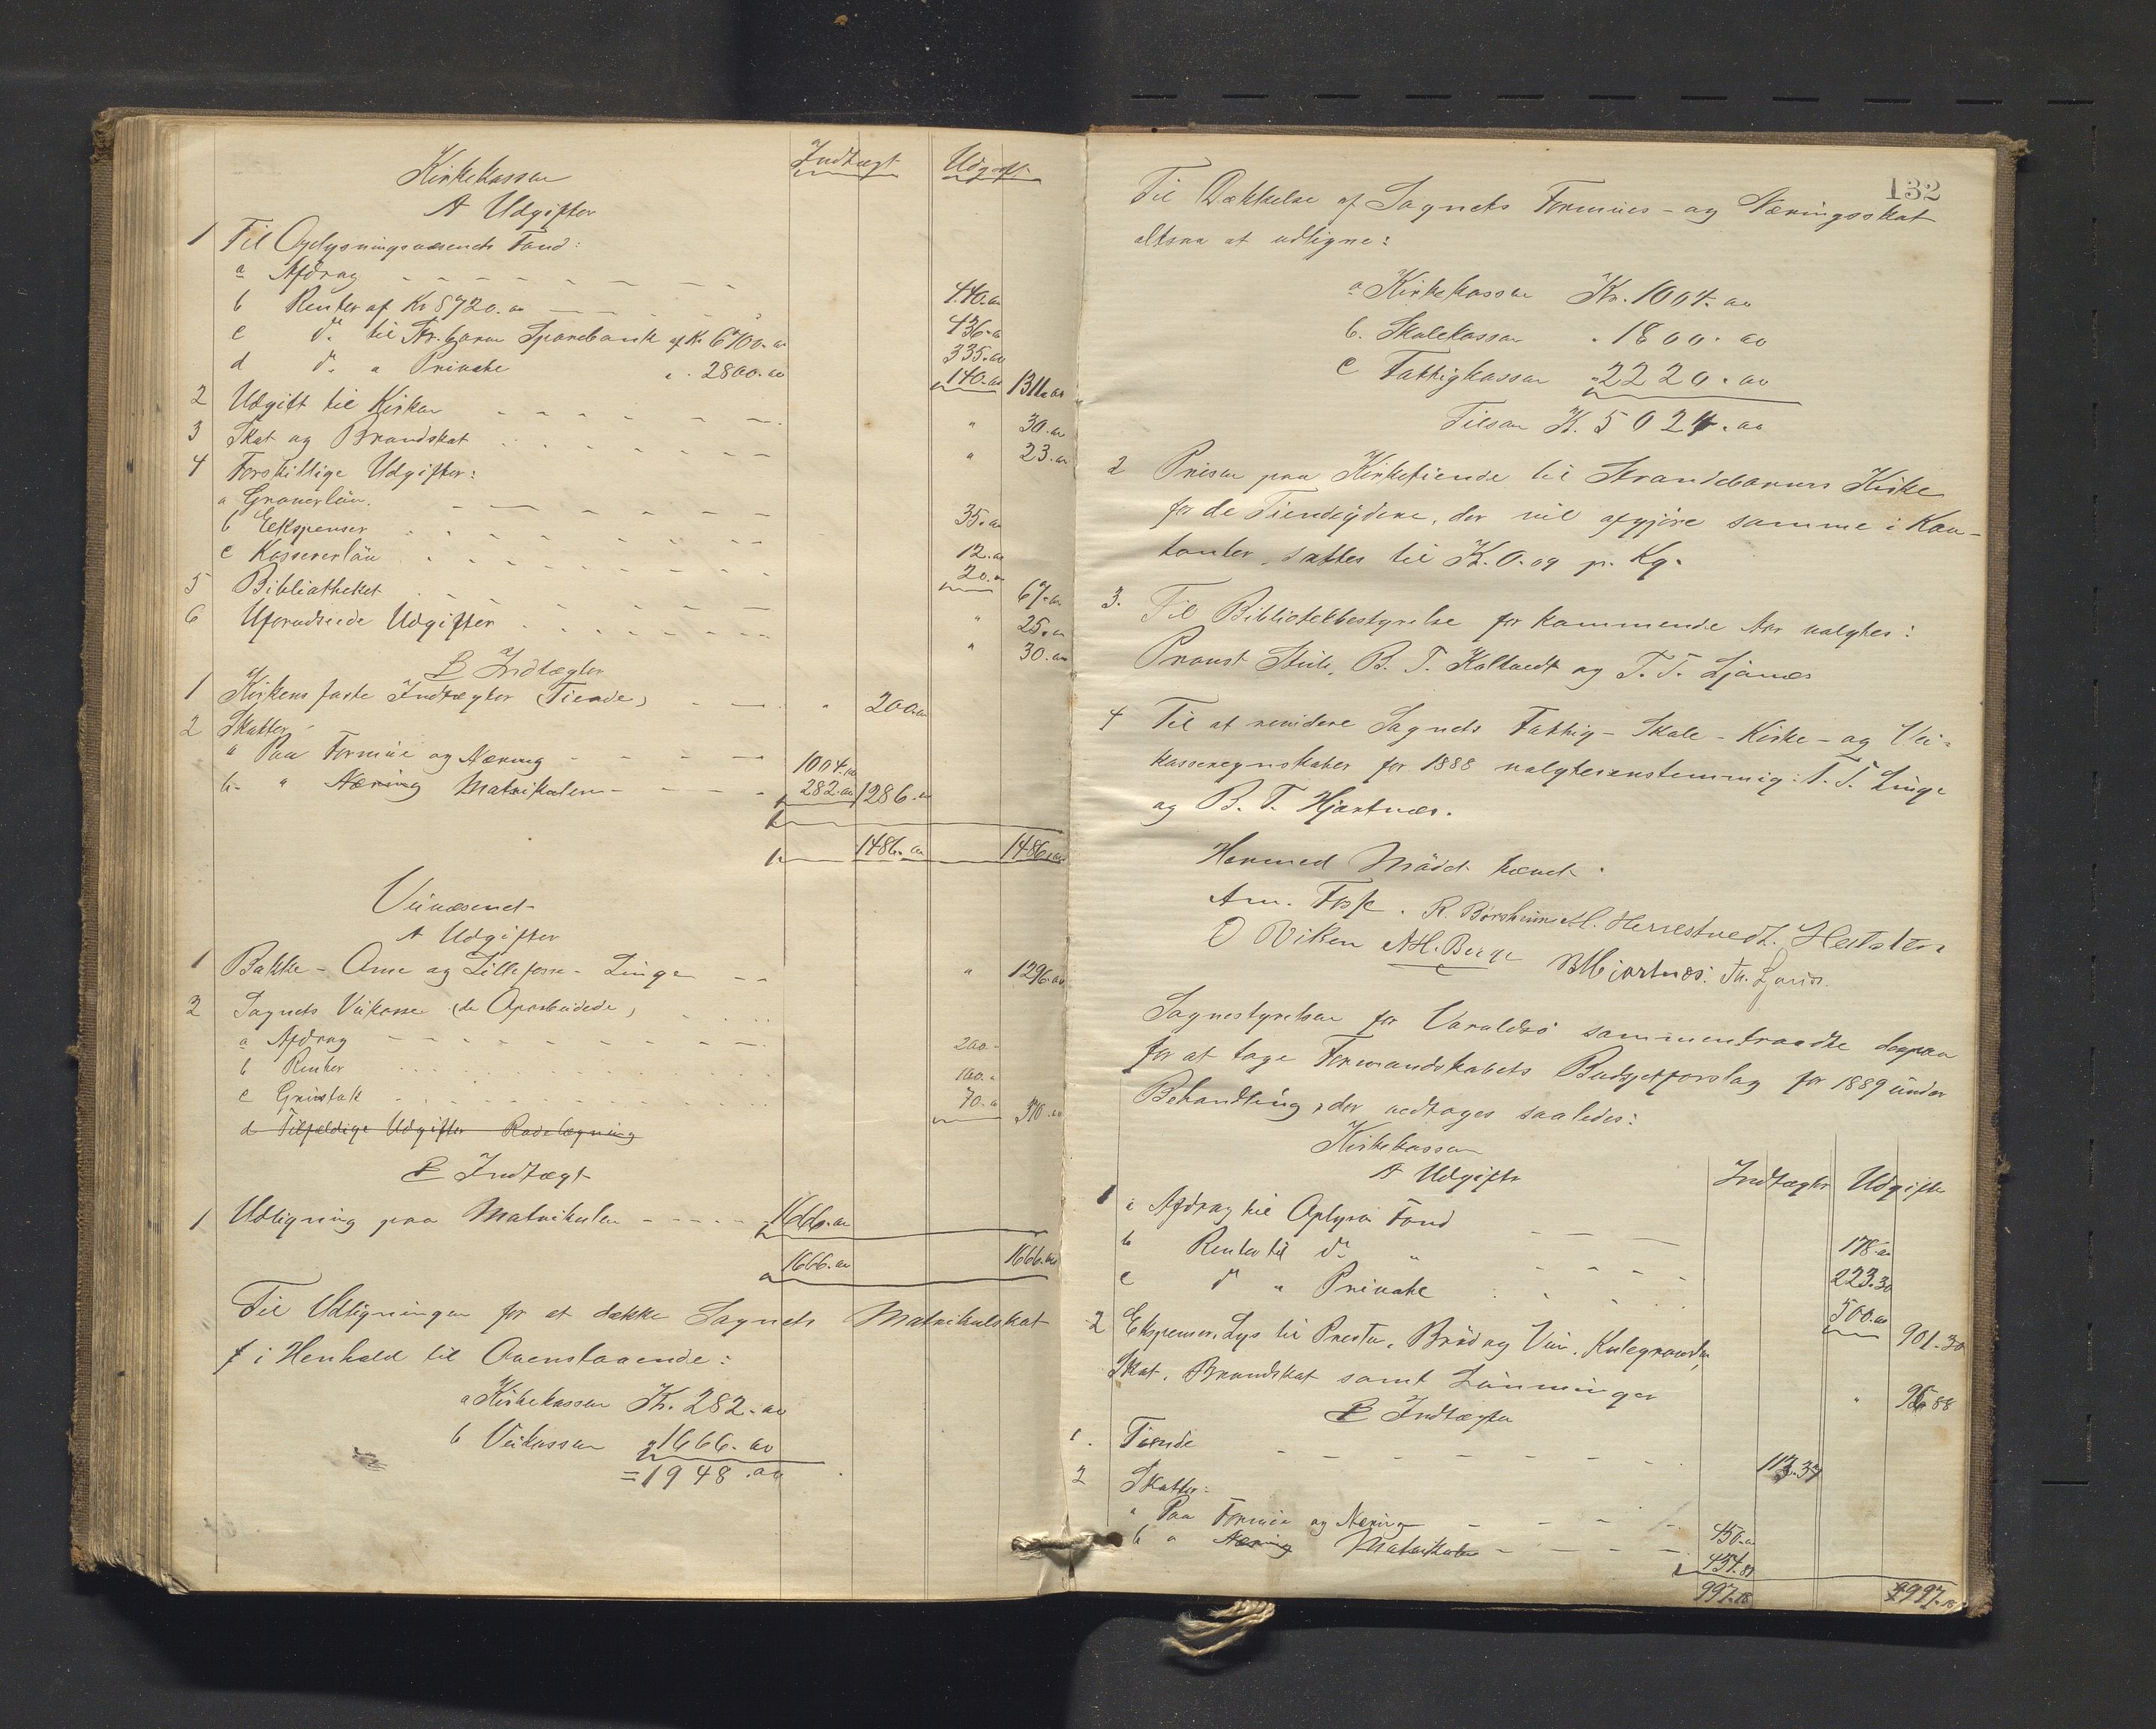 Kirkekassen
Indtægt Udgift
A Udgifter
1 Til Oplysningsvæsenets Fond:
a Afdrag - - - - - - 440.00
b Renter af Kr 8720.00 - - - 436.00
c do. til Str.barm Sparebank af Kr 6700.00 335.00
d do. " Private " 2800.00 140.00 1351.00
2 Udgift til Kirken - - - - - " 30.00
3 Skat og Brandskat - - - - - " 23.00
4 Forskillige Udgifter:
a Graverløn - - - - - 35.00
b Ekspenser - - - - - 12.00
c Kassererløn - - - - - 20.00 67.00
5 Bibliotheket - - - - - " 25.00
6 Uforudseede Udgifter - - - - " 30.00
B Indtægter
1 Kirkens faste Indtægter (Tiende) - - " 200.00
2 Skatter
a Paa Formue og Næring - - - - 1004.00
b - " Næring Matrikulen - - - - 282.00 1286.00
1486.00 1486.00
Veivæsenet
A Udgifter
1 Bakke - Ome og Lillefosse - Linge - - " 1296.00
2 Sognets Veikasse (de Oparbeidede)
a Afdrag - - - - - - 200.-
b Renter - - - - - - 100.-
c Grustak - - - - - - 70.- 370.00
d Tilfældige Udgifter Rodelægning
B Indtægt
1 Udligning paa Matrikulen - - - - 1666.00
1666.00 1666.00
Til Udligningen for at dække Sognets Matrikulskat
f i Henhold til Ovenstaaende:
a Kirkekassen Kr. 282.00
b Veikassen " 1666.00
= 1948.00
132
Til Dækkelse af Sognets Formues- og Næringsskat
altsaa at udligne:
a Kirkekassen Kr. 1004.00
b. Skolekassen " 1800.00
c Fattigkassen " 2220.00
Tilsam K. 5024.00
2 Prisen paa Kirketiende til Strandebarms Kirke
for de Tiendeydere, der vil afgjøre samme i Kon-
tanter, sættes til K. 0.09 pr. Kg.
3. Til Bibliotekbestyrelse for kommende Aar valgtes:
Provst Stub, B. T. Koltvedt og T. T. Ljones
4 Til at revidere Sognets Fattig- Skole- Kirke- og Vei-
kasseregnskaber for 1888 valgtes enstemmig: T. T. Linge
og B. T. Hjartnes.
Hermed Mødet hævet.
Am. Fosse. R. Børsheim M. Herrestvedt.
O Viken A H. Berge B Hjartnes. Th. Ljones.
Sognestyrelsen for Varaldsø sammentraadte derpaa
for at tage Formandskabets Budgetforslag for 1889 under
Behandling, der vedtages saaledes:
Kirkekassen
A Udgifter Indtægter Udgifter
1 a Afdrag til Oplysn Fond - - - 178.00
b Renter til do " - - - - 223.30
c do " Private - - - - 500.00 901.30
2 Ekspenser, Lys til Presten, Brød og Vin,
Skat, Brandskat samt Lønninger " 95.88
B Indtægter
1. Tiende - - - - - - - 112.37
2 Skatter:
a Paa Formue og Næring - - - - 450.00
b " Næring Matrikulen - - - - 434.81
997.18 997.18